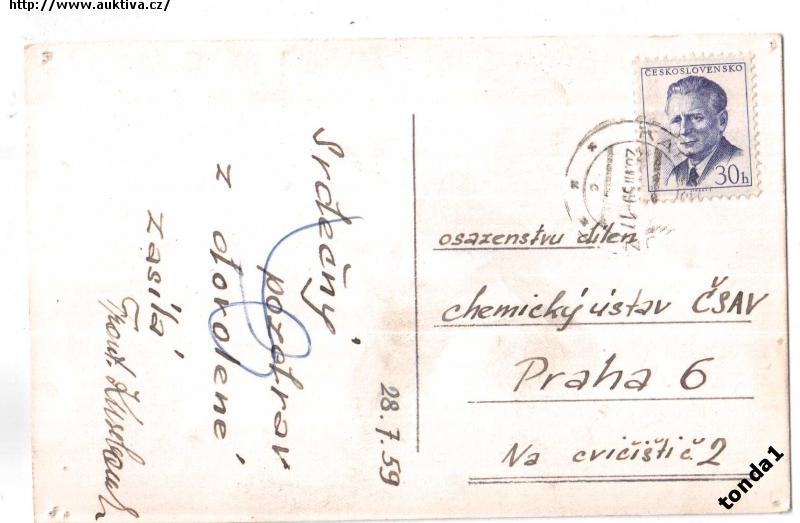 http://www.auktiva.cz/
ČESKOSLOVENSKO
30h
Srdečný
pozdrav
z dovolené
zasílá
28.7.59
osazenstvu dílen
chemický ústav ČSAV
Praha 6
Na cvičišti č 2
tonda1